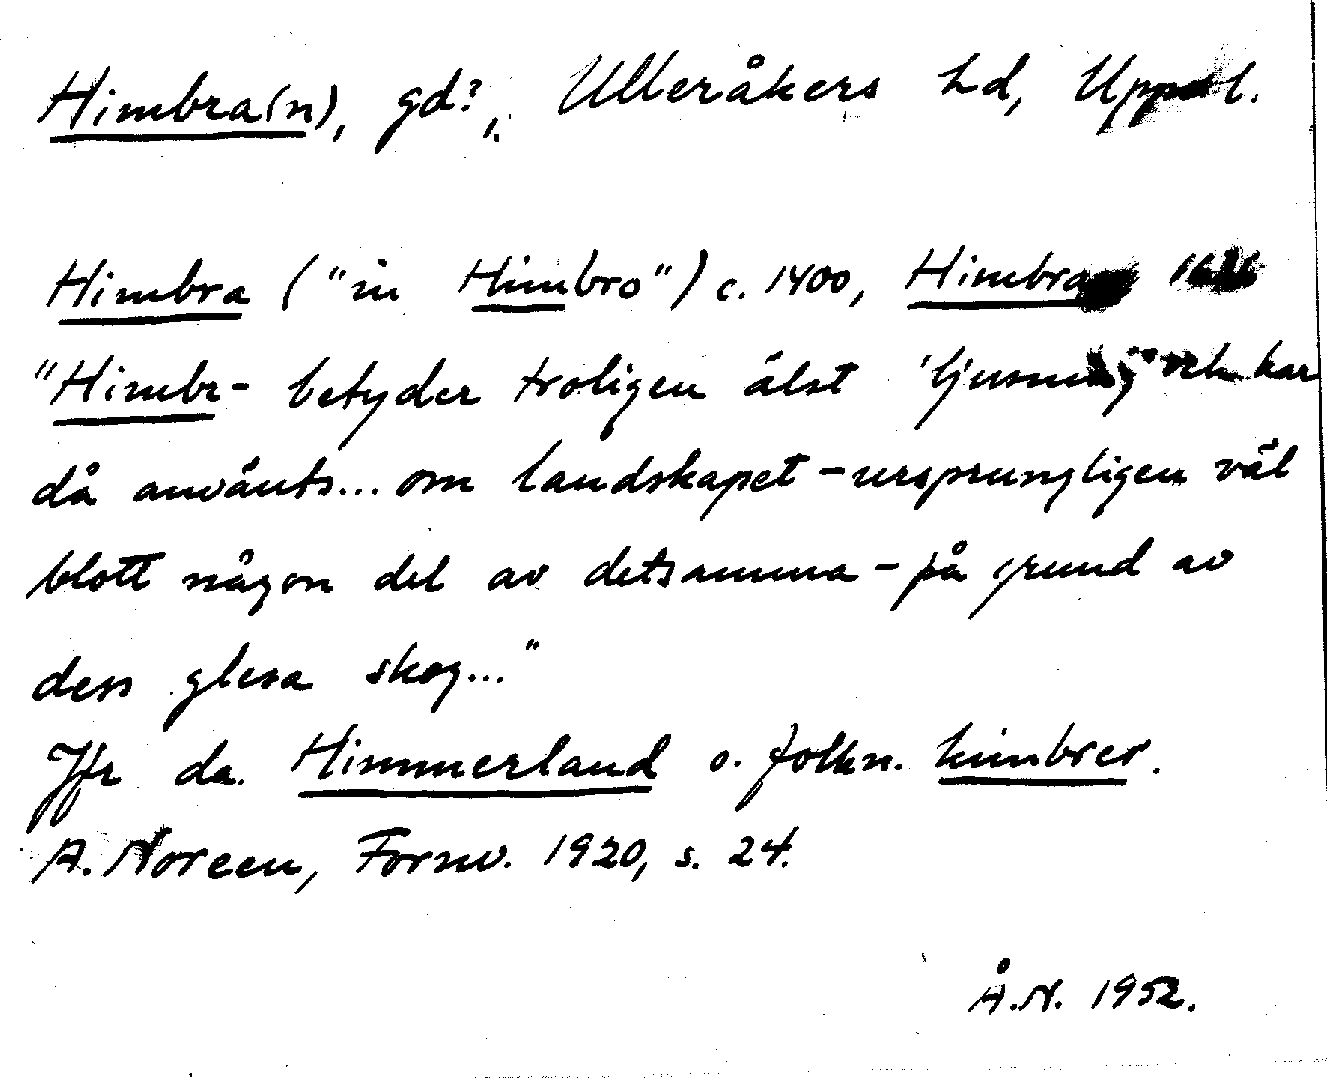 Himbra(n), gd?, Ulleråkers hd, Uppl.
Himbra ("in Himbro") c. 1400, Himbra
"Himbr- betyder troligen älst 'ljusning' och har
då använts... om landskapet - ursprungligen väl
blott någon del av detsamma - på grund av
dess glesa skog..."
Jfr da. Himmerland o. folkn. kimbrer.
A. Noreen, Fornv. 1920, s. 24.
Å.N. 1952.